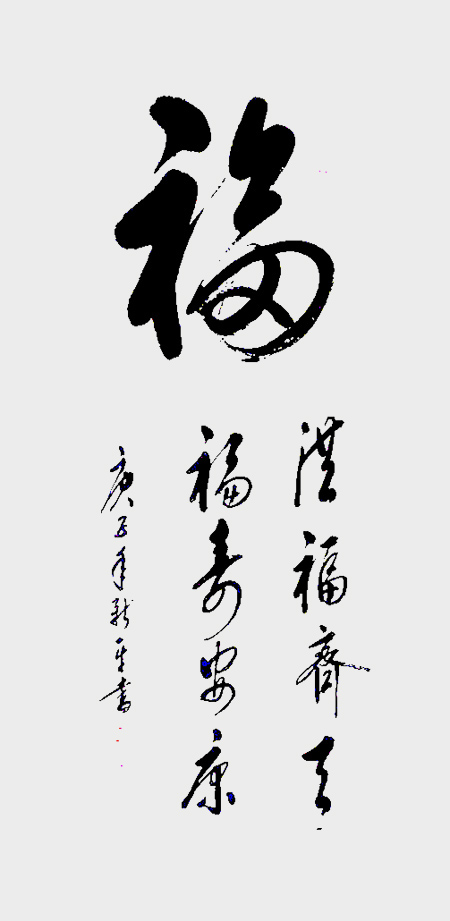 福
洪福齊天
福寿安康
庚子年新春書